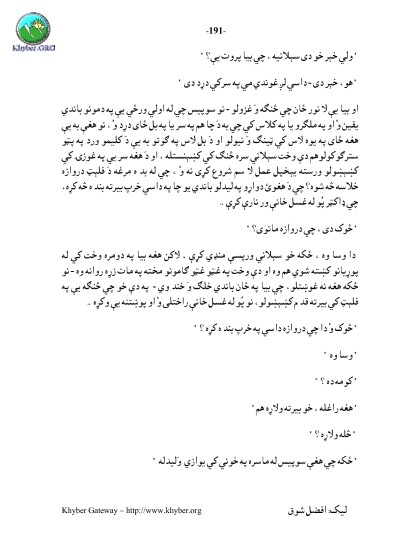 -191-
Khyber.ORG
" ولې خبر خو دی سبلانیه ، چې بیا پروت یې ؟ "
" هو ، خبر دی - داسې لږ غوندې مې په سر کې درد دی "
او بیا یې لا نور ځان چې څنګه وَ غزولو - نو سوپیس چې له اولې ورځې یې په دمونو باندې
یقین وٗ او په ملګرو یا په کلاس کې چې به دَ چا هم په سر یا په بل ځای درد وٗ ، نو هغې به یې
هغه ځای په یوه لاس کې ټینګ وَ نیولو او دَ بل لاس په ګوتو به یې دَ کلیمو ورد په پټو
سترګو کولو هم دې وخت سبلاني سره څنګ کې کښېنستله ، او دَ هغه سر یې په غوږی کې
کښېښولو ورسته یېخپل عمل لا سم شروع کړی نه وٗ ، چې له بد ه مرغه دَ فلېټ دروازه
خلاسه شوه؟ چې دَ هغوئ دواړو په لیدلو باندې یو چا په داسې خرپ بیرته بند ه کړه،
چې ډاکټر پُو له غسل خانې ور نارې کړې ..
" څوک دی ، چې دروازه ماتوی؟ "
دا وسا وه ، ځکه خو سبلاني ورپسې منډې کړې ، لاکن هغه بیا په دومره وخت کې له
پوړیانو کښته شوې هم وه او دې وخت په غټو غټو ګامونو مخته په مات زړه روانه وه - نو
ځکه هغه نه غوښتلو، چې بیا په ځان باندې خلګ وَ خند وي - په دې خو چې څنګه یې په
فلېټ کې بیرته قد م کښېښولو، نو پُو له غسل خانې راختلی وٗ او پوښتنه یې وکړه ..
" څوک وٗ دا چې دروازه داسې په خرپ بند ه کړه ؟ "
" وسا وه "
" کومه ده ؟ "
" هغه راغله ، خو بیرته ولاړه هم "
" څله ولاړه ؟ "
" ځکه چې هغې سوپیس له ما سره په خونې کې یوازې ولیدله "
Khyber Gateway – http://www.khyber.org
لیک: افضل شوق